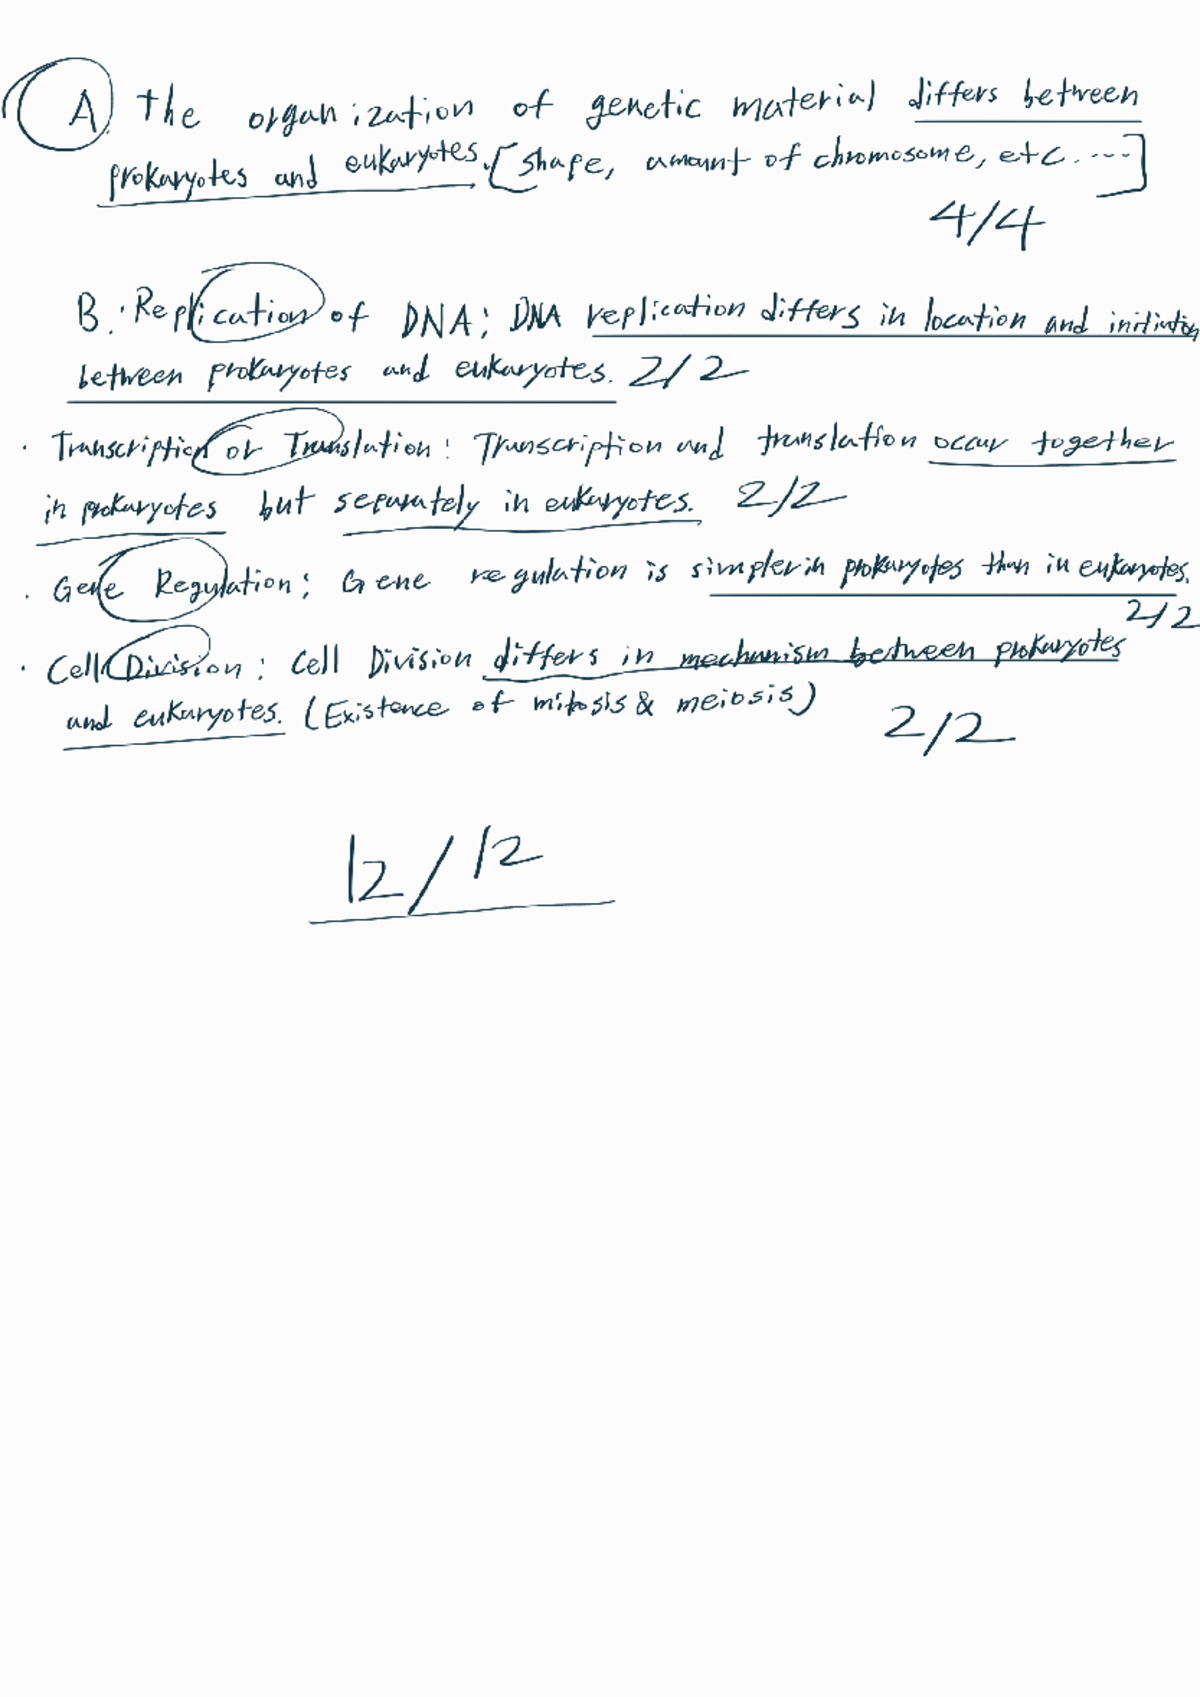 A. The organization of genetic material differs between
prokaryotes and eukaryotes. [shape, amount of chromosome, etc. ....]
4/4
B. · Replication of DNA; DNA replication differs in location and initiation
between prokaryotes and eukaryotes. 2/2
· Transcription or Translation: Transcription and translation occur together
in prokaryotes but separately in eukaryotes. 2/2
· Gene Regulation; Gene regulation is simpler in prokaryotes than in eukaryotes.
2/2
· Cell Division: Cell Division differs in mechanism between prokaryotes
and eukaryotes. (Existence of mitosis & meiosis)
2/2
12/12